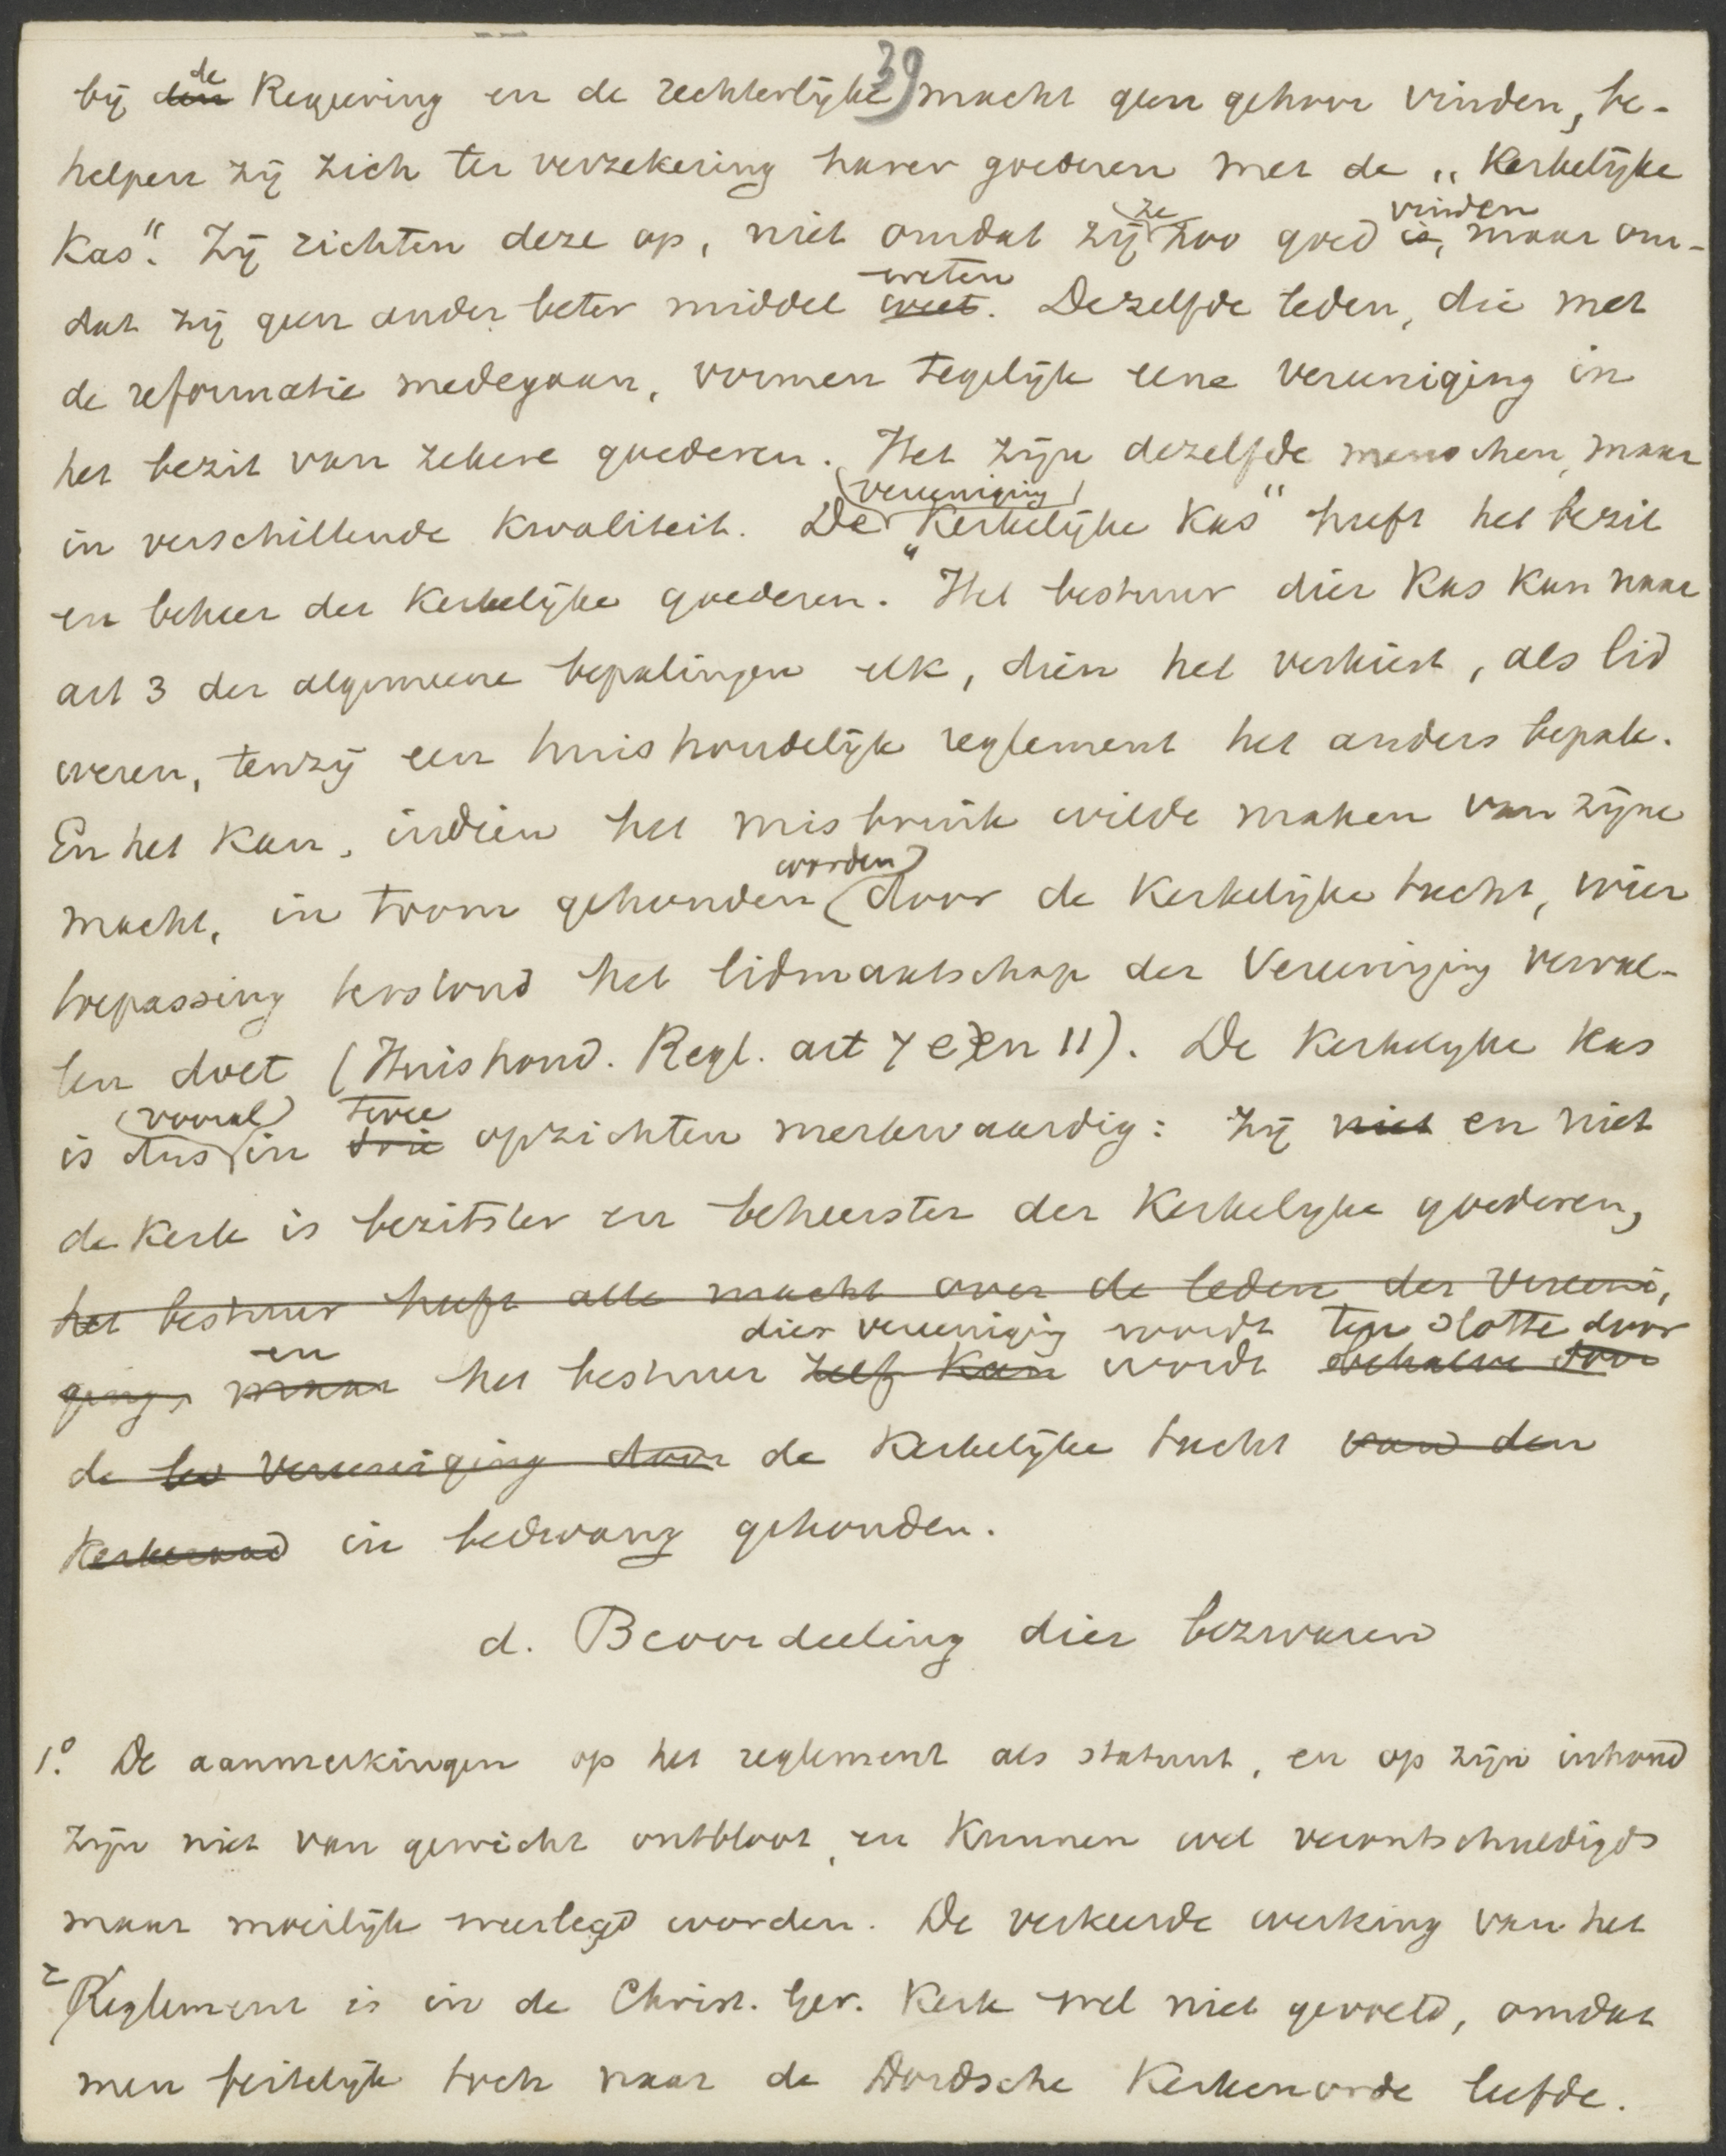 39
bij den de Regeering en de rechterlijke macht geen gehoor vinden, be-
helpen zij zich ter verzekering harer goederen met de „Kerkelijke
Kas". Zij richten deze op, niet omdat zij ze zoo goed is, vinden maar om-
dat zij geen ander beter middel weet. weten Dezelfde leden, die met
de reformatie medegaan, vormen tegelijk eene vereeniging in
het bezit van zekere goederen. Het zijn dezelfde menschen, maar
in verschillende kwaliteit. De (vereeniging) „Kerkelijke Kas" heeft het bezit
en beheer der Kerkelijke goederen. Het bestuur dier Kas kan naar
art 3 der algemeene bepalingen elk, dien het verkiest, als lid
weren, tenzij een huishoudelijk reglement het anders bepale.
En het kan, indien het misbruik wilde maken van zijne
macht, in toom gehouden worden door de Kerkelijke tucht, wier
toepassing terstond het lidmaatschap der Vereeniging verval-
len doet (Huishoud. Regl. art 7 e) en 11). De Kerkelijke Kas
is dus (vooral) in drie twee opzichten merkwaardig: zij niet en niet
de Kerk is bezitster en beheerster der Kerkelijke goederen,
het bestuur heeft alle macht over de leden der Vereeni,
ging, maar en het bestuur zelf kan dier vereeniging wordt wordt behalve door ten slotte door
de lev vereeniging door de Kerkelijke tucht van den
Kerkeraad in bedwang gehouden.
d. Beoordeeling dier bezwaren
1.º De aanmerkingen op het reglement als statuut, en op zijn inhoud
zijn niet van gewicht ontbloot, en kunnen wel verontschuldigd
maar moeilijk weerlegd worden. De verkeerde werking van het
Reglement is in de Christ. Ger. Kerk wel niet gevoeld, omdat
men feitelijk toch naar de Dordsche Kerkenorde leefde.